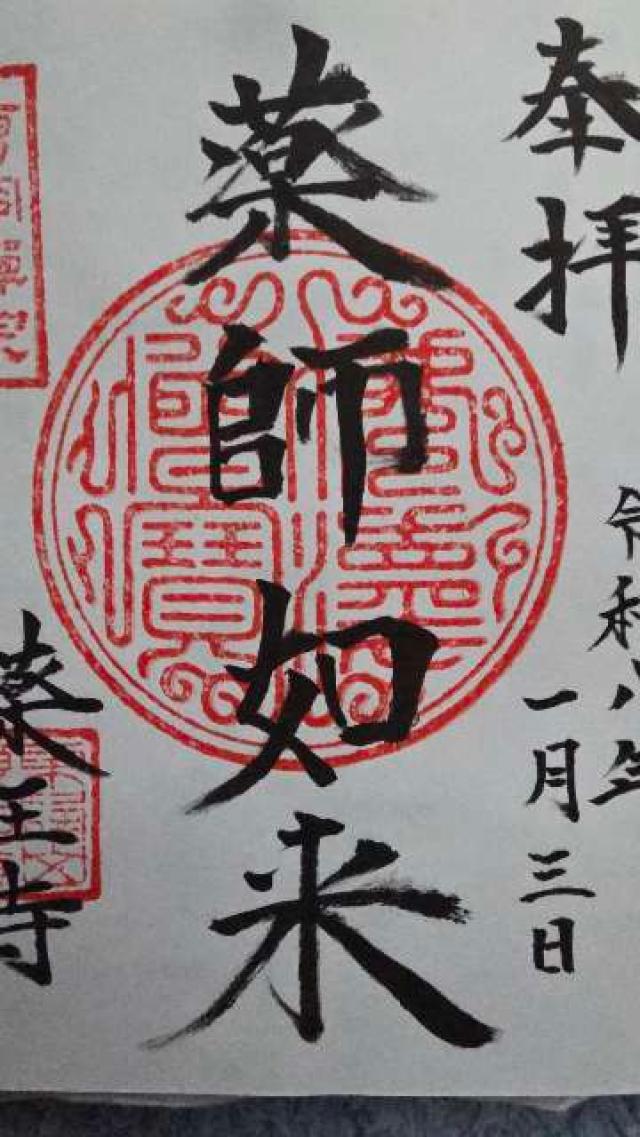 奉拝
令和八年
一月三日
薬師如来
薬王寺